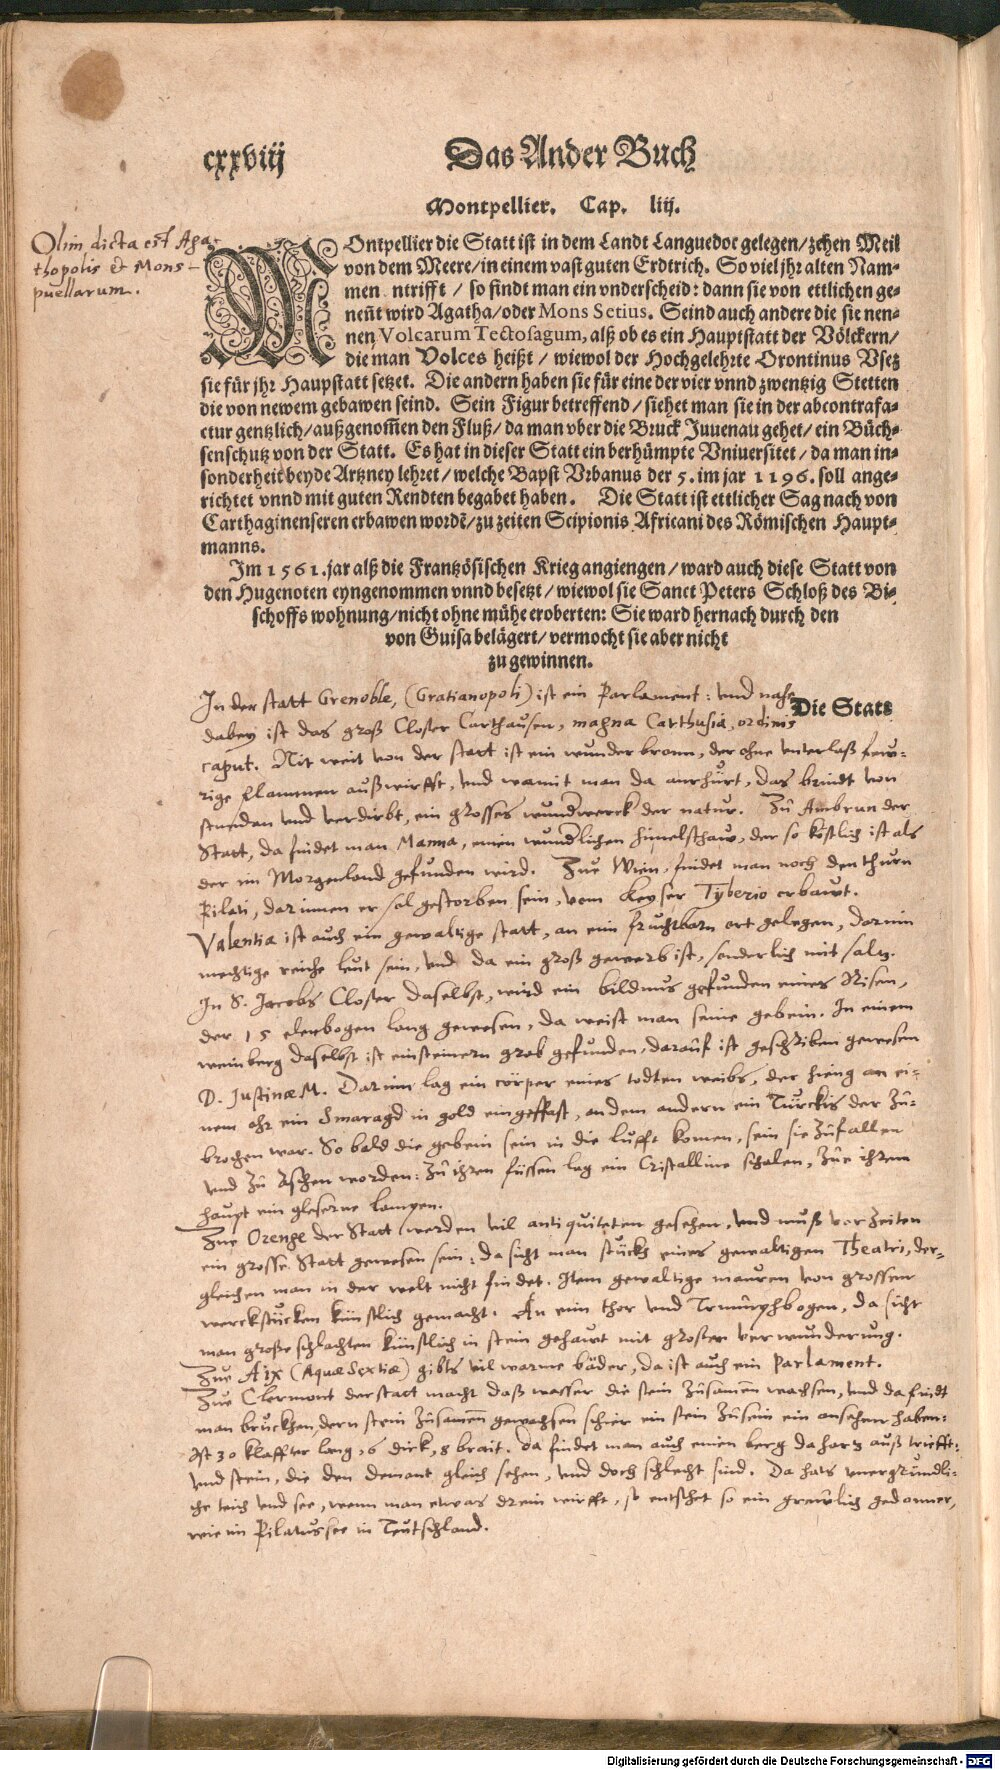 cxxviij
Das Ander Buch
Montpellier. Cap. liij.
Olim dicta est Aga-
thopolis & Mons-
puellarum.
MOntpellier die Statt ist in dem Landt Languedoc gelegen/ zehen Meil
von dem Meere/ in einem vast guten Erdtrich. So viel jhr alten Nam-
men ntrifft / so findt man ein vnderscheid: dann sie von ettlichen ge-
neñt wird Agatha/ oder Mons Setius. Seind auch andere die sie nen-
nen Volcarum Tectosagum, alß ob es ein Hauptstatt der Völckern/
die man Volces heißt / wiewol der Hochgelehrte Orontinus Vsez
sie für jhr Haupstatt setzet. Die andern haben sie für eine der vier vnnd zwentzig Stetten
die von newem gebawen seind. Sein Figur betreffend / siehet man sie in der abcontrafa-
ctur gentzlich/ außgenom̃en den Fluß/ da man vber die Bruck Juuenau gehet/ ein Büch-
senschutz von der Statt. Es hat in dieser Statt ein berhümpte Vniuersitet / da man in-
sonderheit beyde Artzney lehret / welche Bapst Vrbanus der 5. im jar 1196. soll ange-
richtet vnnd mit guten Rendten begabet haben. Die Statt ist ettlicher Sag nach von
Carthaginenseren erbawen wordẽ/ zu zeiten Scipionis Africani des Römischen Haupt-
manns.
Im 1561. jar alß die Frantzösischen Krieg angiengen / ward auch diese Statt von
den Hugenoten eyngenommen vnnd besetzt / wiewol sie Sanct Peters Schloß des Bi-
schoffs wohnung/ nicht ohne mühe eroberten: Sie ward hernach durch den
von Guisa belägert/ vermocht sie aber nicht
zu gewinnen.
Die Statt
In der statt Grenoble, (Gratianopoli) ist ein Parlament: und nahe
dabey ist das groß Closter Carthausen, magna Carthusia, ordinis
caput. Nit weit von der statt ist ein wunder bronn, der ohne unterlaß few-
rige flammen außwirfft, und wamit man da anrhürt, das brindt von
stunden und verdirbt, ein grosses wundwerck der natur. Zu Ambrun der
Statt, da findet man Manna, einen wundlichen himelschaw, der so köstlich ist als
der im Morgenland gefunden wird. Zue Wien, findet man noch den thurn
Pilati, darinnen er sol gestorben sein, vom Keyser Tyberio erbawt.
Valentia ist auch ein gewaltige statt, an eim fruchtbarn ort gelegen, darinn
mechtige reiche leut sein, und da ein groß gewerb ist, sonderlich mit saltz.
In S. Jacobs Closter daselbst, wird ein bildnus gefunden eines Risen,
der 15 elenbogen lang gewesen, da weist man seine gebein. In einem
weinberg daselbst ist ein steinern grab gefunden, darauf ist geschriben gewesen
D. Justinæ M. Darinn lag ein cörper eines todten weibs, der hieng an ei-
nem ohr ein Smaragd in gold eingefast, an dem andern ein Turckis der zu-
brochen war. So bald die gebein sein in die lufft komen, sein sie zufallen
und zu Aschen worden: zu ihren füssen lag ein Cristalline schalen, zue ihrem
haupt ein gleserne lampen.
Zue Orenge der Statt werden vil antiquiteten gesehen, und muß vor zeiten
ein grosse Statt gewesen sein: da sicht man stuckh eines gewaltigen Theatri, der-
gleichen man in der welt nicht findet. Item gewaltige mauren von grossen
werckstucken künstlich gemacht. An eim thor und Triumphbogen, da sicht
man große schlachten künstlich in stein gehawt mit grosser verwunderung.
Zue Aix (Aquæ Sextiæ) gibts vil warme bäder, da ist auch ein Parlament.
Zue Clermont der statt macht daß wasser die stein zusamen wachsen, und da findt
man brückhen, dern stein zusamen gewachsen schier ein stein zusein ein ansehen haben:
Ist 30 klaffter lang, 6 dick, 8 brait. Da findet man auch einen berg da hartz auß trieffft:
und stein, die den demant gleich sehen, und doch schlecht sind. Da hats unergründli-
che teich und see, wenn man etwas drein wirfft, so entstehet so ein grewlich gedonner,
wie im Pilatussee in Teutschland.
Digitalisierung gefördert durch die Deutsche Forschungsgemeinschaft - DFG